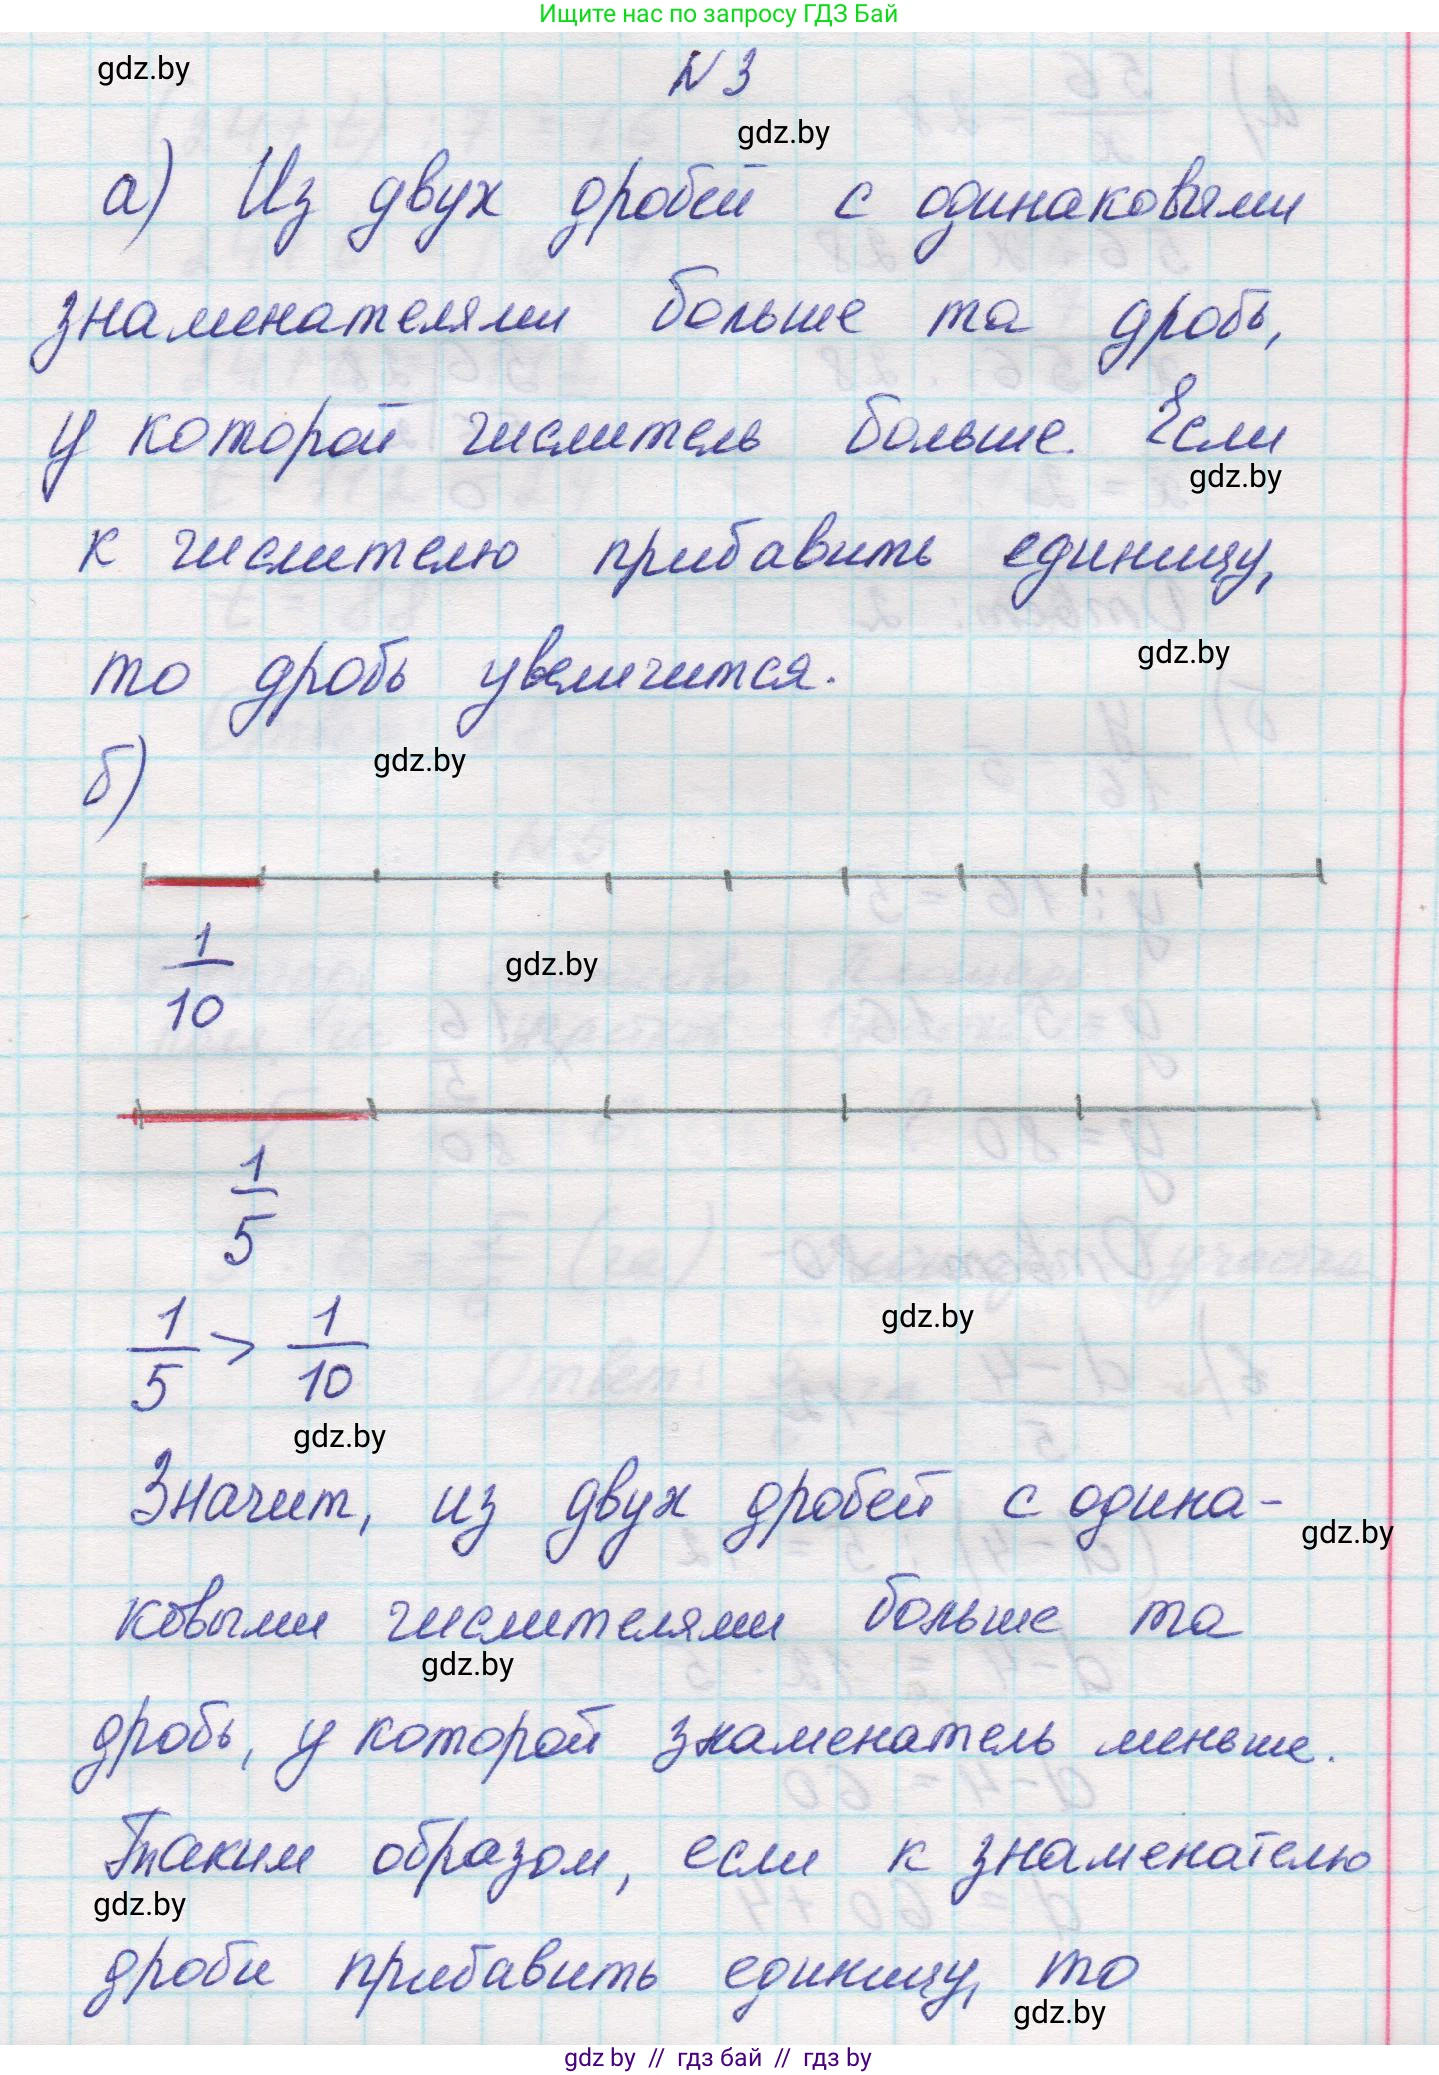 Ищите нас по запросу ГДЗ Бай
gdz.by
N 3
gdz.by
а) Из двух дробей с одинаковыми
знаменателями больше та дробь,
у которой числитель больше. Если
gdz.by
к числителю прибавить единицу,
то дробь увеличится.
gdz.by
б)
gdz.by
1
10
gdz.by
1
5
1/5 > 1/10
gdz.by
gdz.by
Значит, из двух дробей с одина-
gdz.by
ковыми числителями больше та
gdz.by
дробь, у которой знаменатель меньше.
Таким образом, если к знаменателю
gdz.by
дроби прибавить единицу, то
gdz.by
gdz by // гдз бай // гдз by